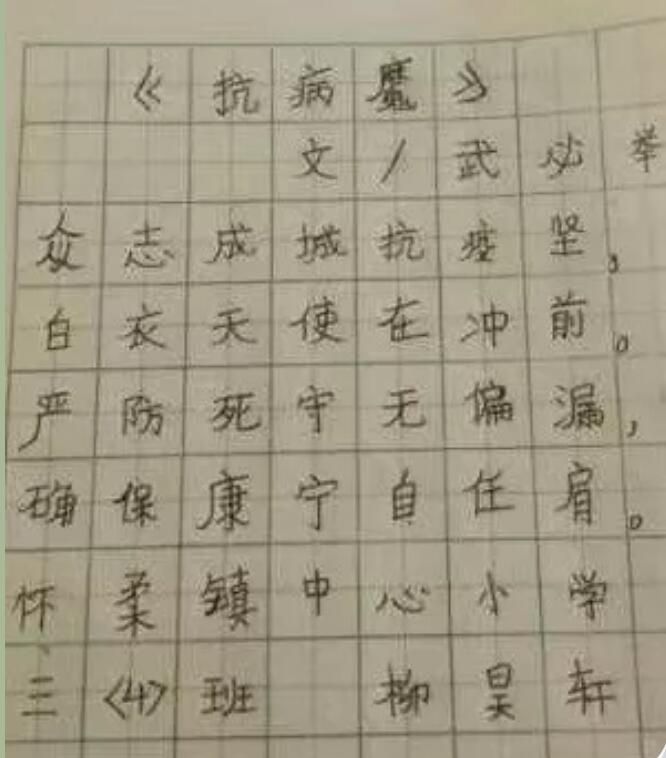 《抗病魔》
文/武必举
众志成城抗疫坚，
白衣天使在冲前。
严防死守无偏漏，
确保康宁自任肩。
怀柔镇中心小学
三〈4〉班 柳昊轩